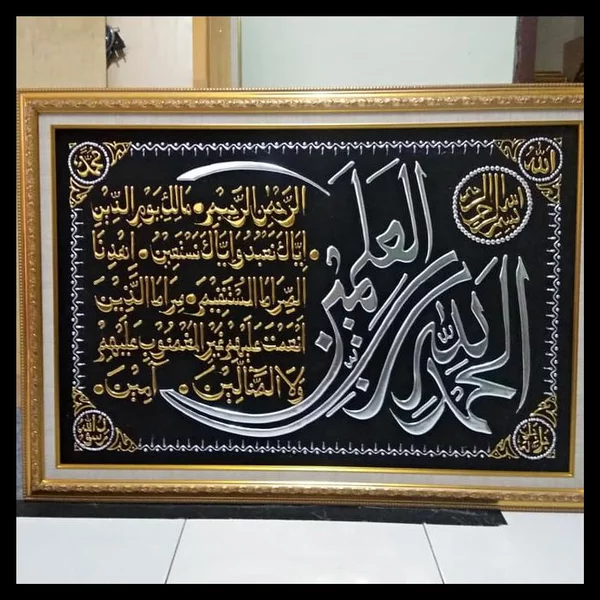 الله
محمد
بسم الله الرحمن الرحيم
الحمد لله رب العلمين
الرحمن الرحيم • مالك يوم الدين
إياك نعبد وإياك نستعين • اهدنا
الصراط المستقيم • صراط الذين
أنعمت عليهم غير المغضوب عليهم
ولا الضالين • آمين •
رسول الله